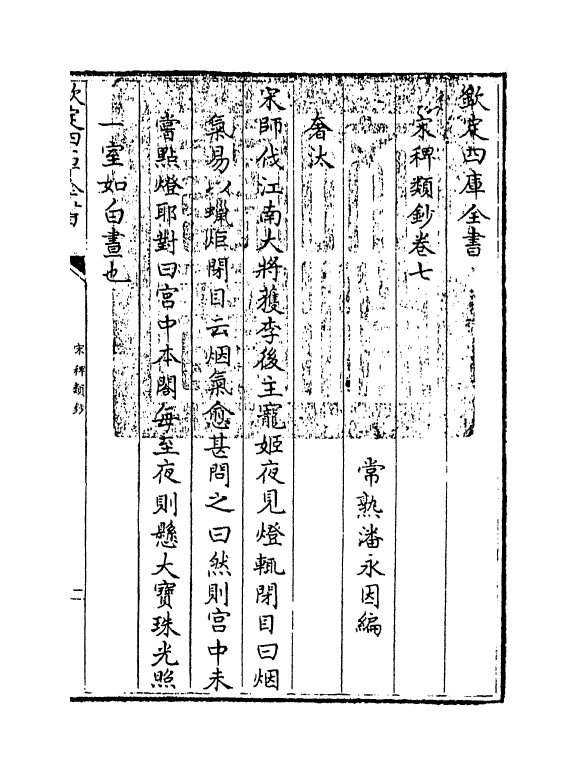 欽定四庫全書
宋稗類鈔卷七
常熟潘永因編
奢汰
宋師伐江南大將獲李後主寵姬夜見燈輒閉目曰烟
氣易以蠟炬閉目云烟氣愈甚問之曰然則宮中未
嘗點燈耶對曰宮中本閣每至夜則懸大寶珠光照
一室如白晝也
欽定四庫全書
宋稗類鈔